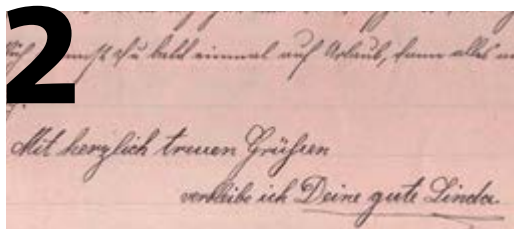 2
bald einmal auf Urlaub, dann alles
Mit herzlich treuen Grüßen
verbleibe ich Deine gute Linda.